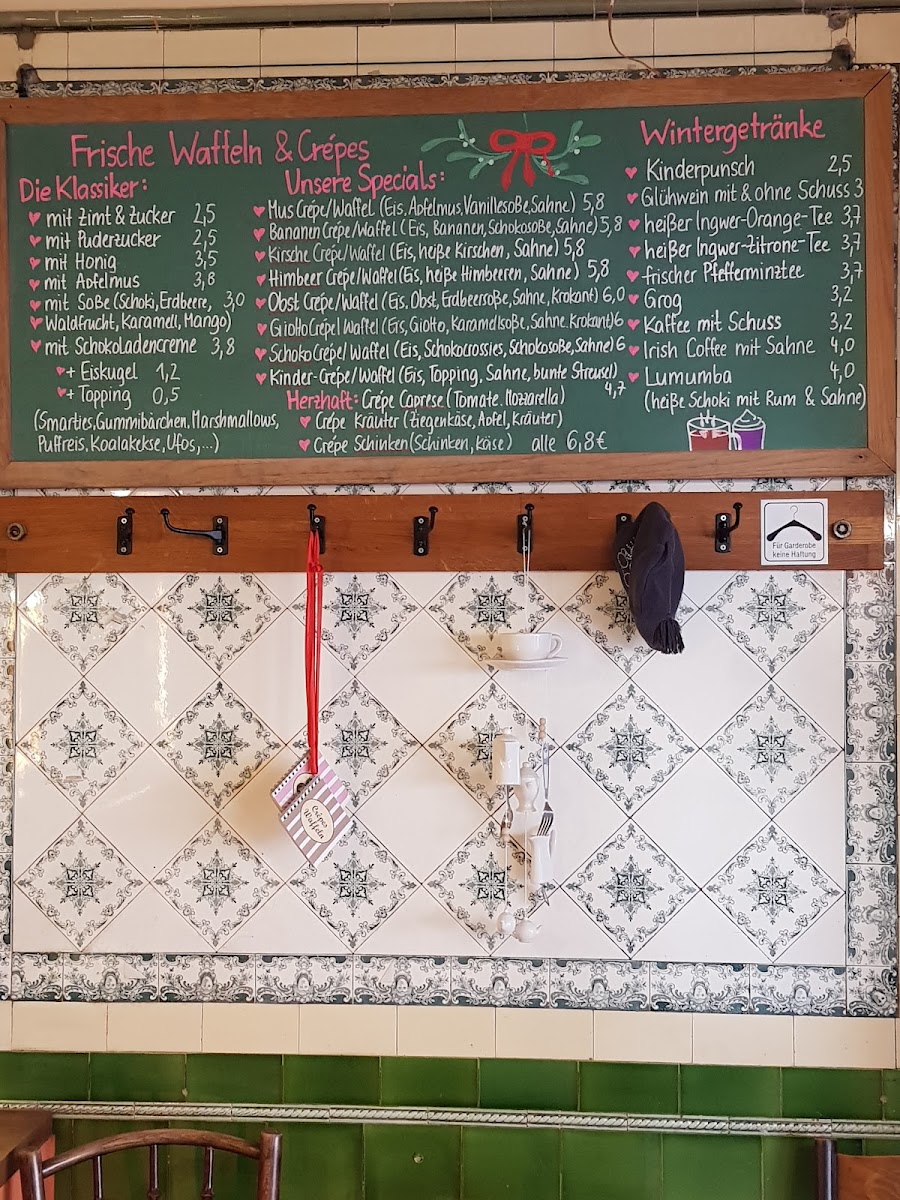 Frische Waffeln & Crépes
Die Klassiker:
mit Zimt & Zucker 2,5
mit Puderzucker 2,5
mit Honig 3,5
mit Apfelmus 3,8
mit Soße (Schoki, Erdbeere, 3,0
Waldfrucht, Karamell, Mango)
mit Schokoladencreme 3,8
+ Eiskugel 1,2
+ Topping 0,5
(Smarties, Gummibärchen, Marshmallows,
Puffreis, Koalakekse, Ufos,...)
Unsere Specials:
Mus Crépe/Waffel (Eis, Apfelmus, Vanillesoße, Sahne) 5,8
Bananen Crépe/Waffel (Eis, Bananen, Schokosoße, Sahne) 5,8
Kirsche Crépe/Waffel (Eis, heiße Kirschen, Sahne) 5,8
Himbeer Crépe/Waffel (Eis, heiße Himbeeren, Sahne) 5,8
Obst Crépe/Waffel (Eis, Obst, Erdbeersoße, Sahne, Krokant) 6,0
Giotto Crépe/Waffel (Eis, Giotto, Karamellsoße, Sahne, Krokant) 6
Schoko Crépe/Waffel (Eis, Schokocrossies, Schokosoße, Sahne) 6
Kinder-Crépe/Waffel (Eis, Topping, Sahne, bunte Streusel) 4,7
Herzhaft: Crépe Caprese (Tomate, Mozzarella)
Crépe Kräuter (Ziegenkäse, Apfel, Kräuter)
Crépe Schinken (Schinken, Käse) alle 6,8€
Wintergetränke
Kinderpunsch 2,5
Glühwein mit & ohne Schuss 3
heißer Ingwer-Orange-Tee 3,7
heißer Ingwer-Zitrone-Tee 3,7
frischer Pfefferminztee 3,7
Grog 3,2
Kaffee mit Schuss 3,2
Irish Coffee mit Sahne 4,0
Lumumba 4,0
(heiße Schoki mit Rum & Sahne)
Für Garderobe
keine Haftung
Crêpes
Waffeln